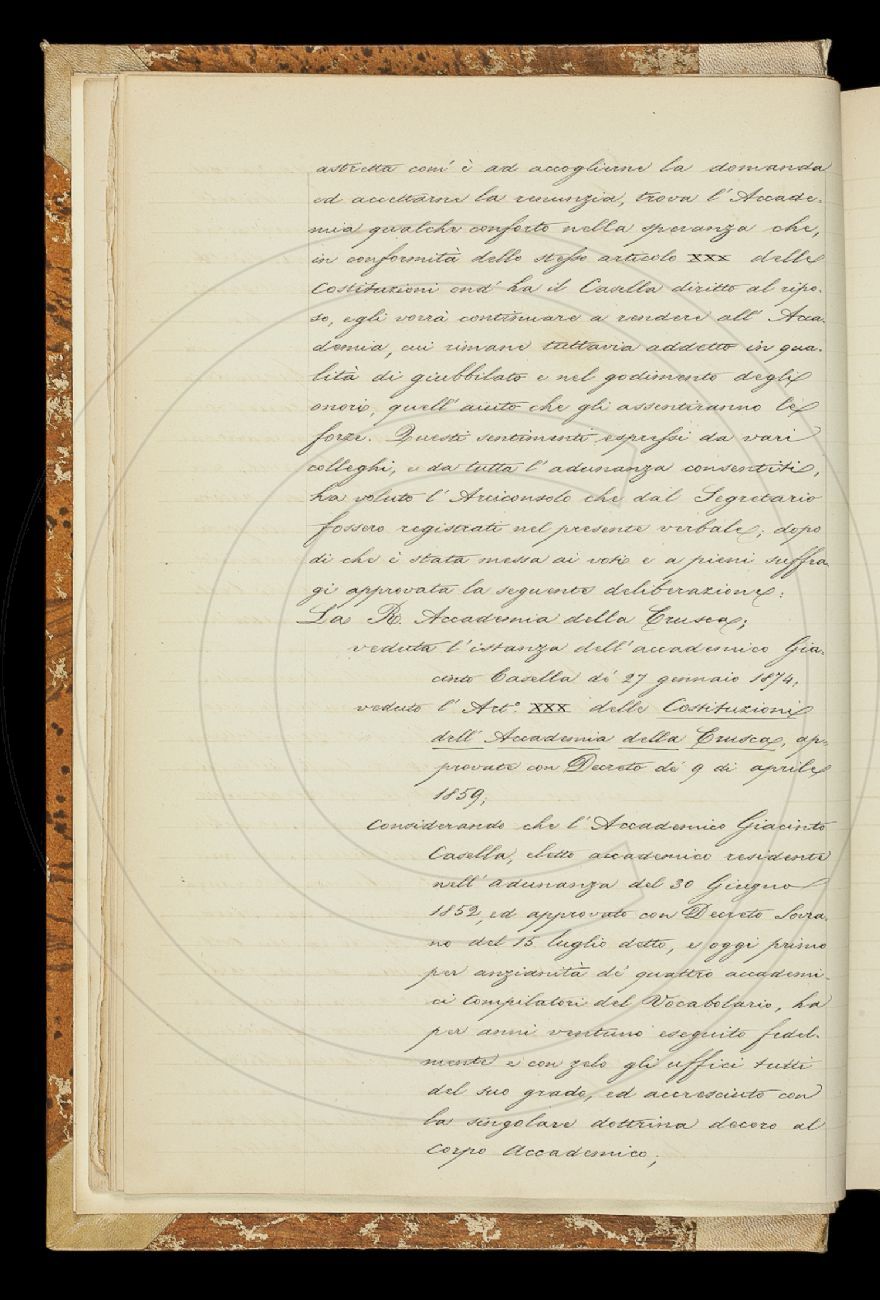 astretta com' è ad accoglierne la domanda
ed accettarne la renunzia, trova l' Accade-
mia qualche conforto nella speranza che,
in conformità dello stesso articolo XXX delle
Costituzioni ond' ha il Casella diritto al ripo-
so, egli vorrà continuare a rendere all' Acca-
demia, cui rimane tuttavia addetto in qua-
lità di giubbilato e nel godimento degli
onori, quell' aiuto che gli assentiranno le
forze. Questi sentimenti espressi da vari
colleghi, e da tutta l' adunanza consentiti,
ha voluto l' Arciconsolo che dal Segretario
fossero registrati nel presente verbale; dopo
di che è stata messa ai voti e a pieni suffra-
gi approvata la seguente deliberazione:
La R. Accademia della Crusca;
veduta l' istanza dell' accademico Gia-
cinto Casella de' 27 gennaio 1874;
veduto l' Art.º XXX delle Costituzioni
dell' Accademia della Crusca, ap-
provate con Decreto de' 9 di aprile
1859;
Considerando che l' Accademico Giacinto
Casella, eletto accademico residente
nell' adunanza del 30 Giugno
1852, ed approvato con Decreto Sovra-
no del 15 luglio detto, e oggi primo
per anzianità de' quattro accademi-
ci Compilatori del Vocabolario, ha
per anni ventuno eseguito fedel-
mente e con zelo gli uffici tutti
del suo grado, ed accresciuto con
la singolare dottrina decoro al
Corpo Accademico;